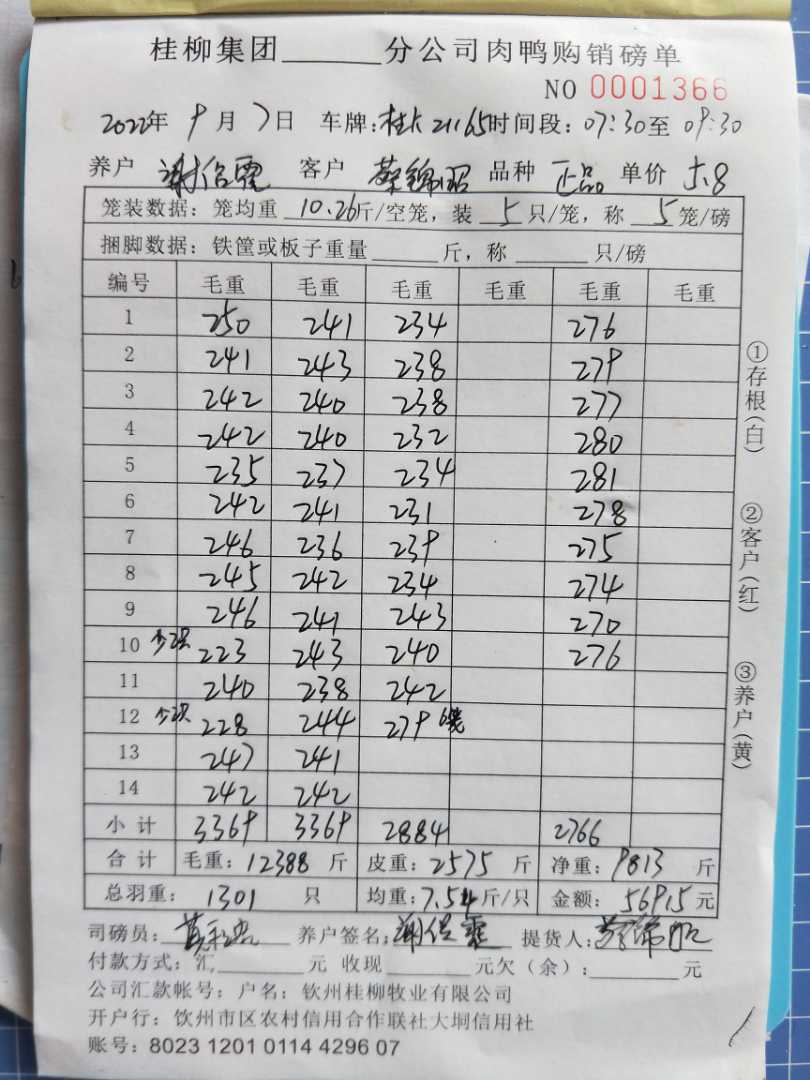 桂柳集团______分公司肉鸭购销磅单
NO 0001366
2022年 9月 7日 车牌:桂K21165时间段:07:30至 09:30
养户 谢信霞 客户 蔡锦昭 品种 正品 单价 5.8
笼装数据: 笼均重 10.26斤/空笼, 装 5 只/笼, 称 5 笼/磅
捆脚数据: 铁筐或板子重量______斤, 称______只/磅
编号 毛重 毛重 毛重 毛重 毛重 毛重
1 250 241 234 276
2 241 243 238 279
3 242 240 238 277
4 242 240 232 280
5 235 237 234 281
6 242 241 231 278
7 246 236 239 275
8 245 242 234 274
9 246 241 243 270
10 少2只 223 243 240 276
11 240 238 242
12 少2只 228 244 279 6笼
13 247 241
14 242 242
小计 3369 3369 2884 2766
合计 毛重: 12388 斤 皮重: 2575 斤 净重: 9813 斤
总羽重: 1301 只 均重: 7.54斤/只 金额: 56915元
司磅员: 养户签名: 提货人: 蔡锦昭
付款方式: 汇______元 收现______元欠(余):______元
公司汇款帐号: 户名: 钦州桂柳牧业有限公司
开户行: 饮州市区农村信用合作联社大垌信用社
账号: 8023 1201 0114 4296 07
①存根(白)
②客户(红)
③养户(黄)